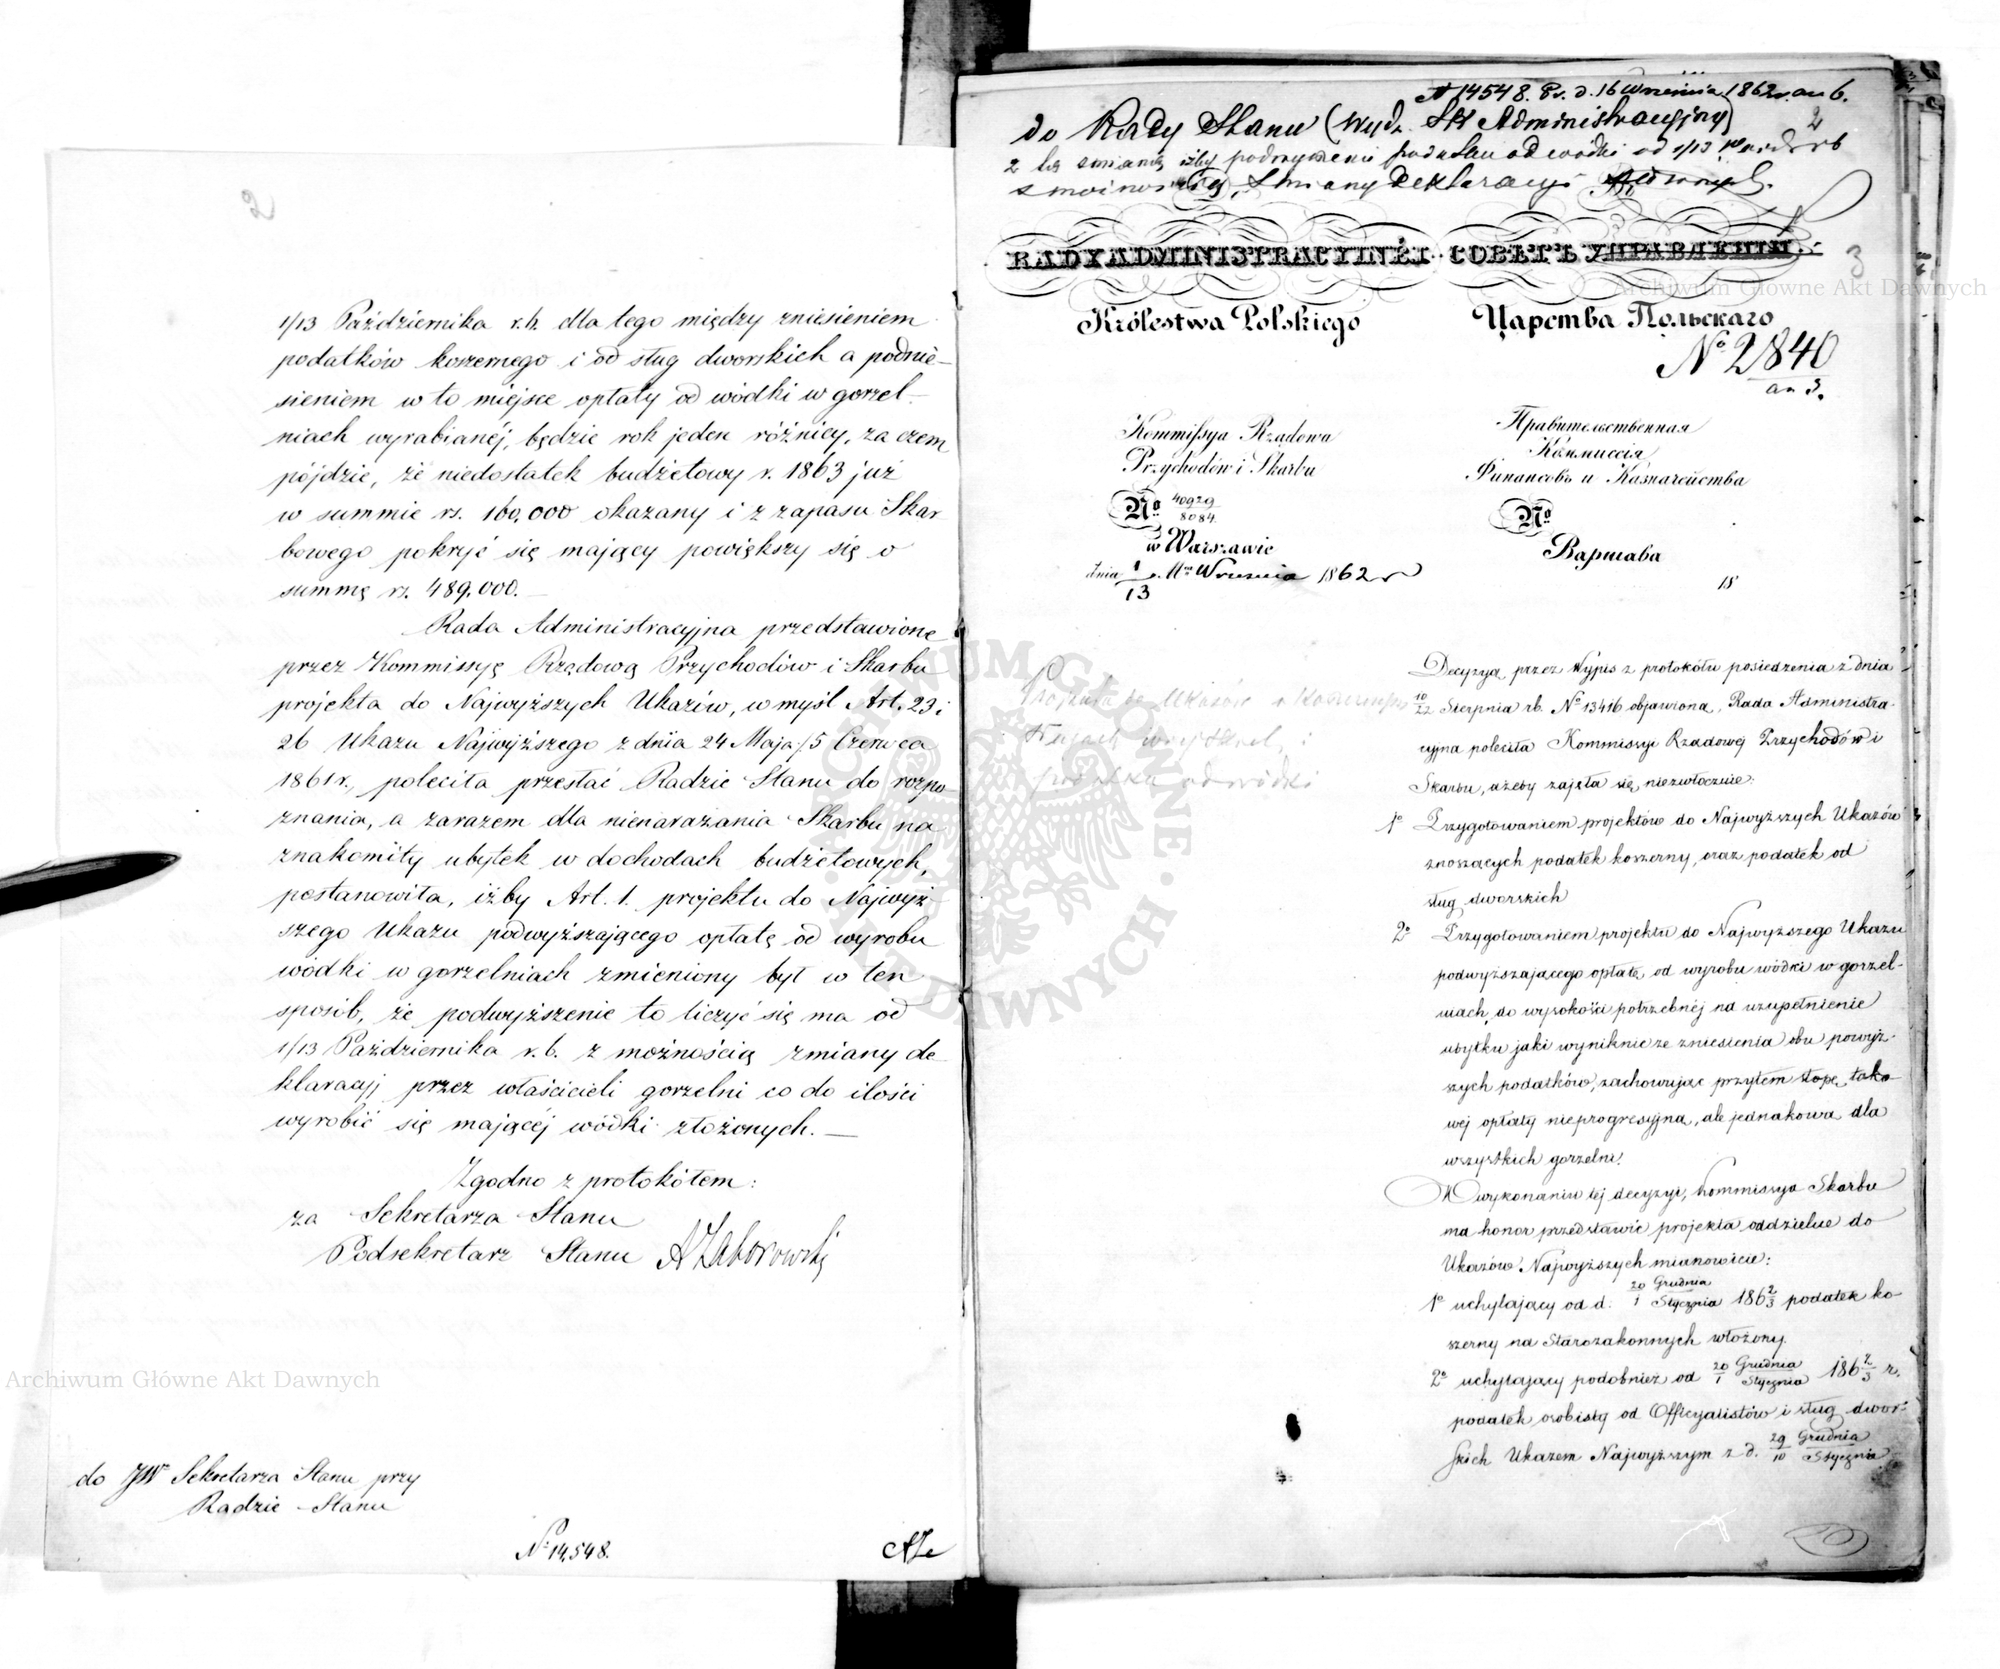 2
1/13 Października r.b. dla tego między zniesieniem
podatków koszernego i od sług dworskich a podnie-
sieniem w to miejsce opłaty od wódki w gorzel-
niach wyrabianéj, będzie rok jeden różnicy, za czem
pójdzie, że niedostatek budżetowy r. 1863 już
w summie rs. 160,000 okazany i z zapasu Skar
bowego pokryć się mający powiększy się o
summę rs. 489,000.—
Rada Administracyjna przedstawione
przez Kommissyę Rządową Przychodów i Skarbu
projekta do Najwyższych Ukazów, w myśl Art. 23 i
26 Ukazu Najwyższego z dnia 24 Maja/5 Czerwca
1861 r., poleciła przesłać Radzie Stanu do rozpo-
znania, a zarazem dla nienarażania Skarbu na
znakomity ubytek w dochodach budżetowych,
postanowiła, iżby Art. 1. projektu do Najwyż-
szego Ukazu podwyższającego opłatę od wyrobu
wódki w gorzelniach zmieniony był w ten
sposób, że podwyższenie to liczyć się ma od
1/13 Października r.b. z możnością zmiany de
klaracyj przez właścicieli gorzelni co do ilości
wyrobić się mającéj wódki złożonych.—
Zgodno z protokółem:
za Sekretarza Stanu
Podsekretarz Stanu AZaborowski
do JW Sekretarza Stanu przy
Radzie Stanu
Nº 14,548.
Archiwum Główne Akt Dawnych
N 14548. d. 16 Września 1862 r. an 6.
do Rady Stanu (Wydz. Administracyjny)
2
podwyższenie podatku od wódki od 1/13
zmiany deklaracyi
RADY ADMINISTRACYINÉI СОВѢТЪ УПРАВЛЕНІЯ
3
Archiwum Główne Akt Dawnych
Królestwa Polskiego Царства Польскаго
Nº 2840
an 3.
Kommissya Rządowa
Przychodów i Skarbu
Nº 40929/8084
w Warszawie
dnia 1/13 Mca Września 1862 r
Правительственная
Коммиссія
Финансовъ и Казначейства
Nº
Варшава
18
podatku od wódki
Decyzyą przez Wypis z protokółu posiedzenia z dnia
10/22 Sierpnia rb. Nº 13416 objawioną, Rada Administra-
cyjna poleciła Kommissyi Rządowej Przychodów i
Skarbu, ażeby zajęła się niezwłocznie:
1º Przygotowaniem projektów do Najwyższych Ukazów
znoszących podatek koszerny, oraz podatek od
sług dworskich
2º Przygotowaniem projektu do Najwyższego Ukazu
podwyższającego opłatę od wyrobu wódki w gorzel-
niach, do wysokości potrzebnéj na uzupełnienie
ubytku jaki wyniknie ze zniesienia obu powyż-
szych podatków, zachowując przytem stopę tako-
wej opłaty nieprogresyjną, ale jednakową dla
wszystkich gorzelni.
W wykonaniu tej decyzyi, Kommissya Skarbu
ma honor przedstawić projekta oddzielne do
Ukazów Najwyższych mianowicie:
1º uchylający od d. 20 Grudnia/1 Stycznia 1862/3 podatek ko-
szerny na Starozakonnych włożony.
2º uchylający podobnież od 20 Grudnia/1 Stycznia 1862/3 r.
podatek osobisty od Officyalistów i sług dwor-
skich Ukazem Najwyższym z d. 29 Grudnia/10 Stycznia
ARCHIWUM GŁÓWNE AKT DAWNYCH